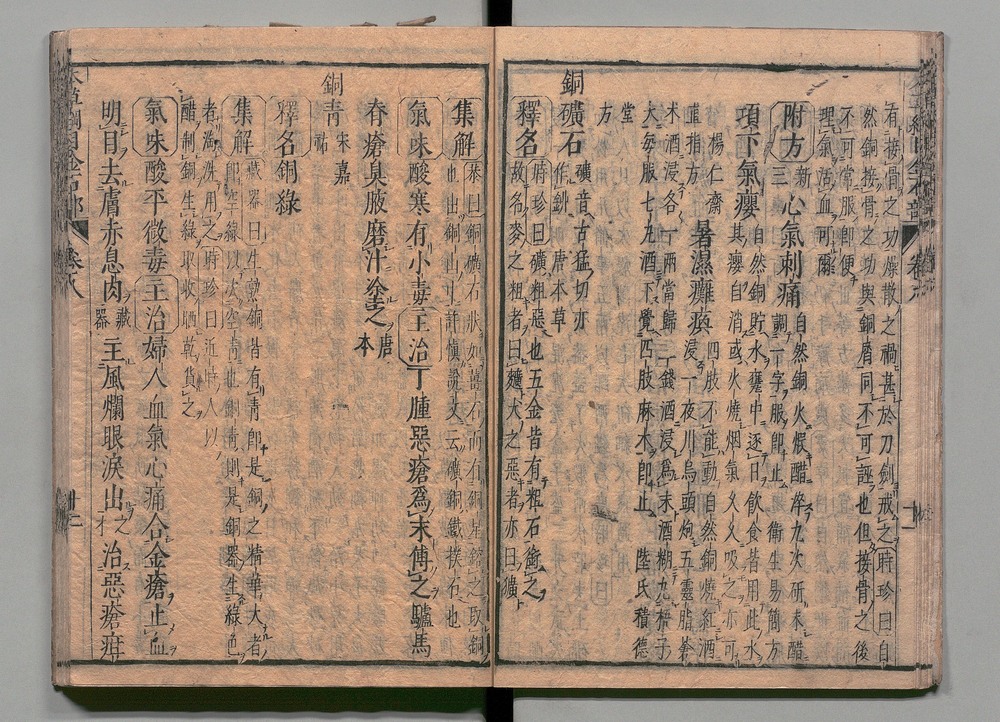 有接骨之功燥散之禍甚於刀劍戒之時珍曰自
然銅接骨之功與銅屑同不可誣也但接骨之後
不可常服即便
理氣活血可爾
附方新三心氣刺痛自然銅火煅醋淬九次研末醋
調一字服即止衛生易簡方
項下氣癭自然銅貯水甕中逐日飲食皆用此水
其癭自消或火燒烟氣久久吸之亦可
楊仁齋
直指方暑濕癱瘓四肢不能動自然銅燒紅酒
浸一夜川烏頭炮五靈脂蒼
术酒浸各一兩當歸二錢酒浸爲末酒糊丸梧子
大每服七丸酒下覺四肢麻木即止陸氏積德
堂
方
銅礦石礦音古猛切亦
作釥唐本草
釋名時珍曰礦粗惡也五金皆有粗石銜之
故名麥之粗者曰䴢犬之惡者亦曰獷
集解恭曰銅礦石狀如薑石而有銅星鎔之取銅
也出銅山山許慎說文云礦銅鐵撲石也
氣味酸寒有小毒主治丁腫惡瘡爲末傅之驢馬
脊瘡臭腋磨汁塗之唐
本
銅青宋嘉
祐
釋名銅綠
集解藏器曰生熟銅皆有青即是銅之精華大者
即空綠以次空青也銅青則是銅器生綠色
者淘洗用之時珍曰近時人以
醋制銅生綠取收晒乾貨之
氣味酸平微毒主治婦人血氣心痛合金瘡止血
明目去膚赤息肉藏
器主風爛眼淚出之才治惡瘡疳